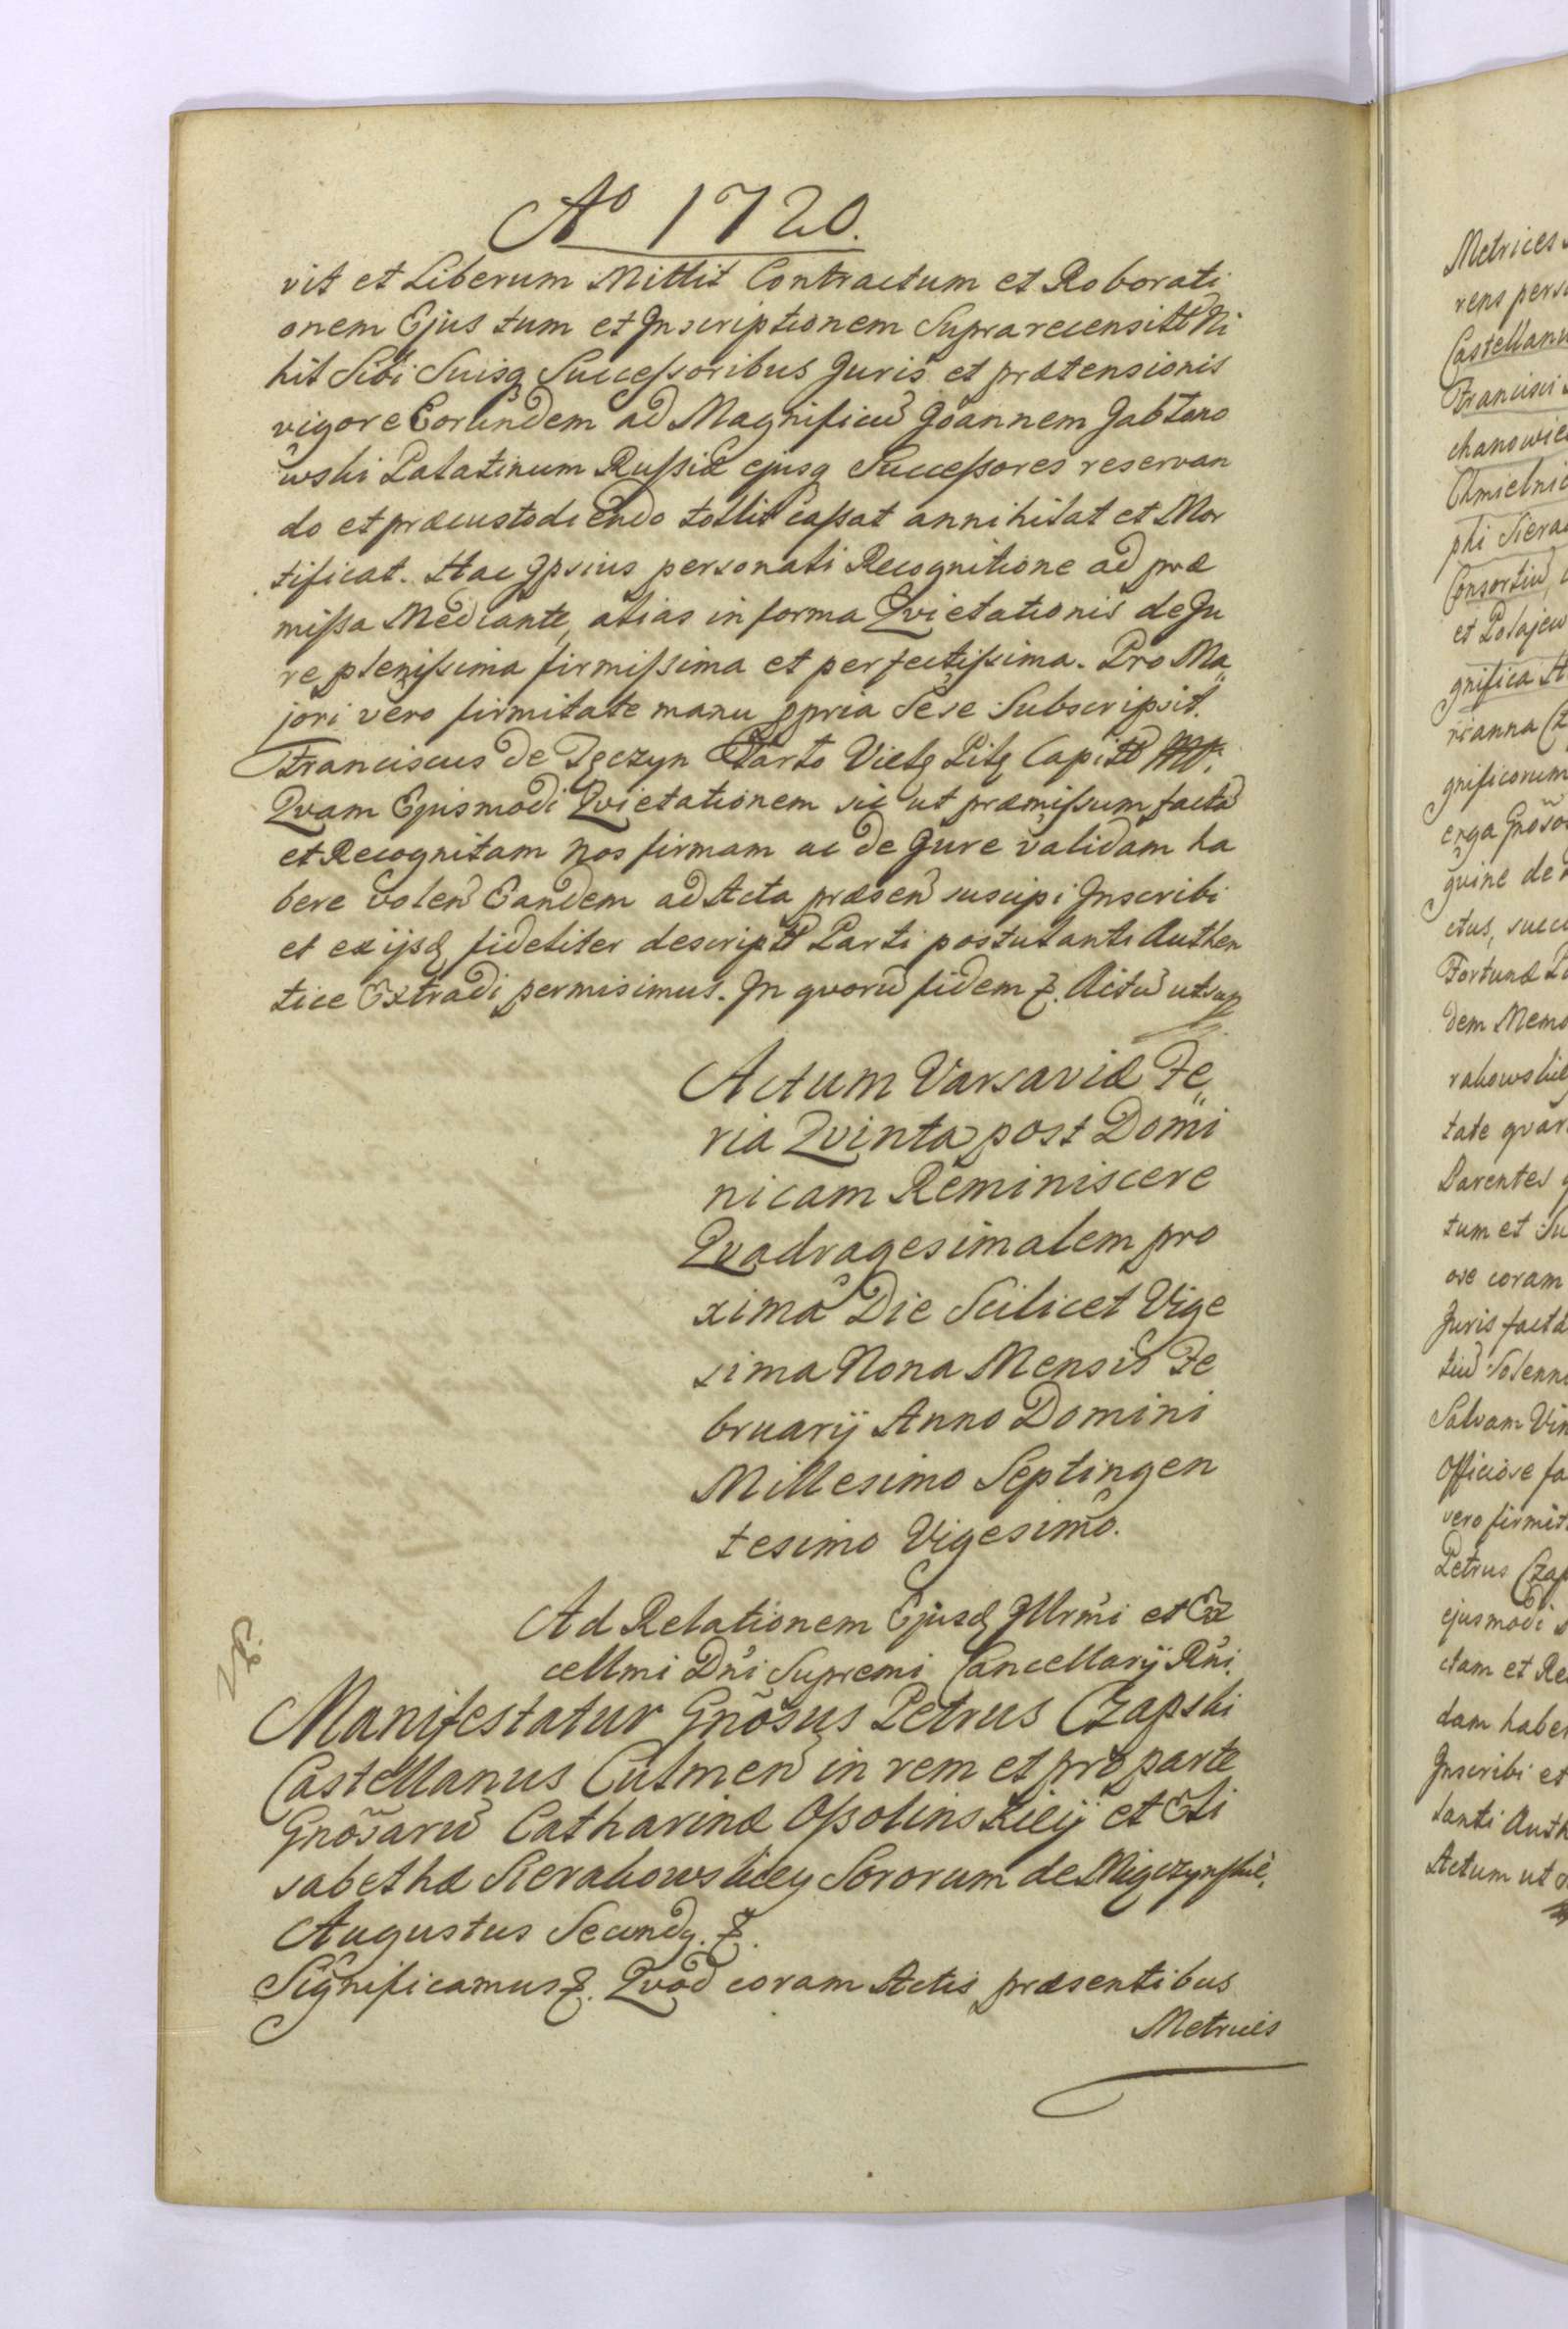 Ao 1720.
vit et Liberum Mittit Contractum et Roborati
onem Ejus tum et Inscriptionem Suprarecensitt Ni
hil Sibi Suisq Successoribus Juris et prætensionis
vigore Eorundem ad Magnificu Joannem Jabłono
wski Palatinum Russiæ ejusq Successores reservan
do et præcustodiendo tollit cassat annihilat et Mor
tificat. Hac Ipsius personali Recognitione ad præ
missa Mediante, alias in forma Qvietationis de Ju
re plenissima firmissima et perfectissima. Pro Ma„
jori vero firmitate manu ppria Sese Subscripsit.
Franciscus de Tęczyn Tarło Vielg Pilg Capitt
Qvam Ejusmodi Qvietationem sic ut præmissum facta
et Recognitam Nos firmam ac de Jure validam ha
bere volen Eandem ad Acta præsen suscipi Inscribi
et ex ijsd fideliter descriptt Parti postulanti Authen
tice Extradi permisimus. In qvoru fidem &. Actu ut sup
Actum Varsaviæ Fe„
ria Qvinta post Domi
nicam Reminiscere
Qvadragesimalem pro
xima Die Scilicet Vige
sima Nona Mensis Fe
bruarij Anno Domini
Millesimo Septingen
tesimo Vigesimo.
Ad Relationem Ejusd Illrmi et Ex
cellmi Dni Supremi Cancellarij Rni.
Manifestatur Gnosus Petrus Czapski
Castellanus Culmen in rem et pro parte
Gnosaru Catharinæ Ossolinskiey et Eli
sabethæ Sierakowskiey Sororum de Miączynskie.
Augustus Secundg. &.
Significamus &. Qvod coram Actis præsentibus
Metrices
Metrices
rens pers
Castellanu
Francisci
chanowie
Chmielnic
phi Siera
Consortiu,
et Polajew
gnifica
rianna Cz
gnificorum
erga Gnoso
gvine de
ctus, succ
Fortunæ
dem Memo
rakowskie
tate qvar
Parentes
tum et Su
ore coram
Juris facta
tiu Solenn
Salvam Vin
Officiose fa
vero firmit
Petrus Czap
ejusmodi
ctam et Re
dam haber
Inscribi et
lanti Auth
Actum ut